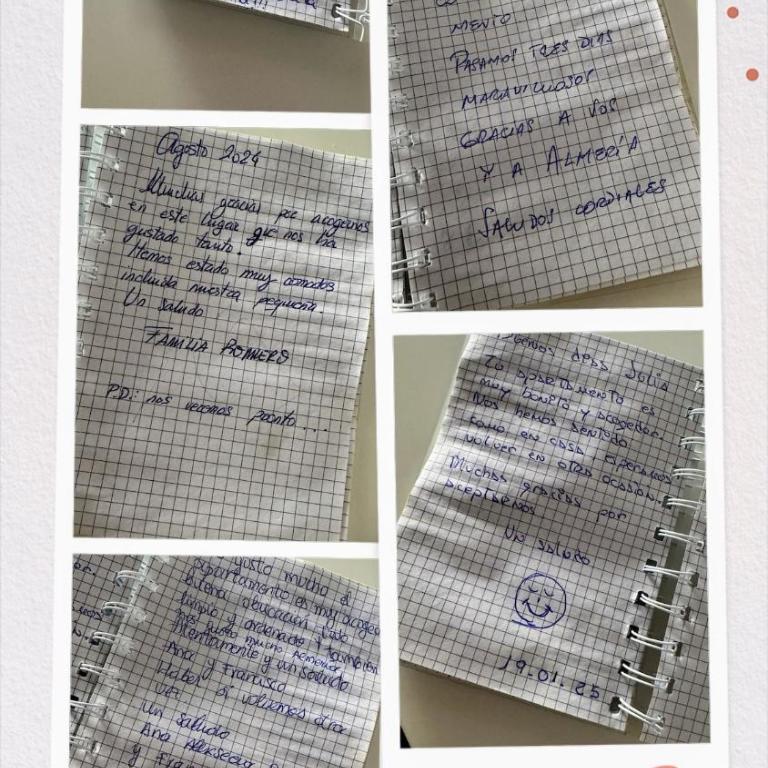 MENTO
PASAMOS TRES DIAS
MARAVILLOSOS
GRACIAS A VOS
Y A ALMERÍA
SALUDOS CORDIALES
Agosto 2024
Muchas gracias por acogernos
en este lugar que nos ha
gustado tanto.
Hemos estado muy cómodos
incluida nuestra pequeña.
Un saludo
FAMILIA ROMERO
P.D.: nos vemos pronto...
Buenos dias Julia
Tu apartamento es
muy bonito y acogedor.
Nos hemos sentido
como en casa esperamos
volver en otra ocasión.
Muchas gracias por
aceptarnos
Un saludo
19.01.25
gusto mucho el
apartamento es muy acoge
buena ubicacion todo
limpio y ordenado y tambien
nos gusto mucho
Atentamente y un saludo
Ana y Francisco
Haber si volvemos otra
vez
Un saludo
Ana
y Fran